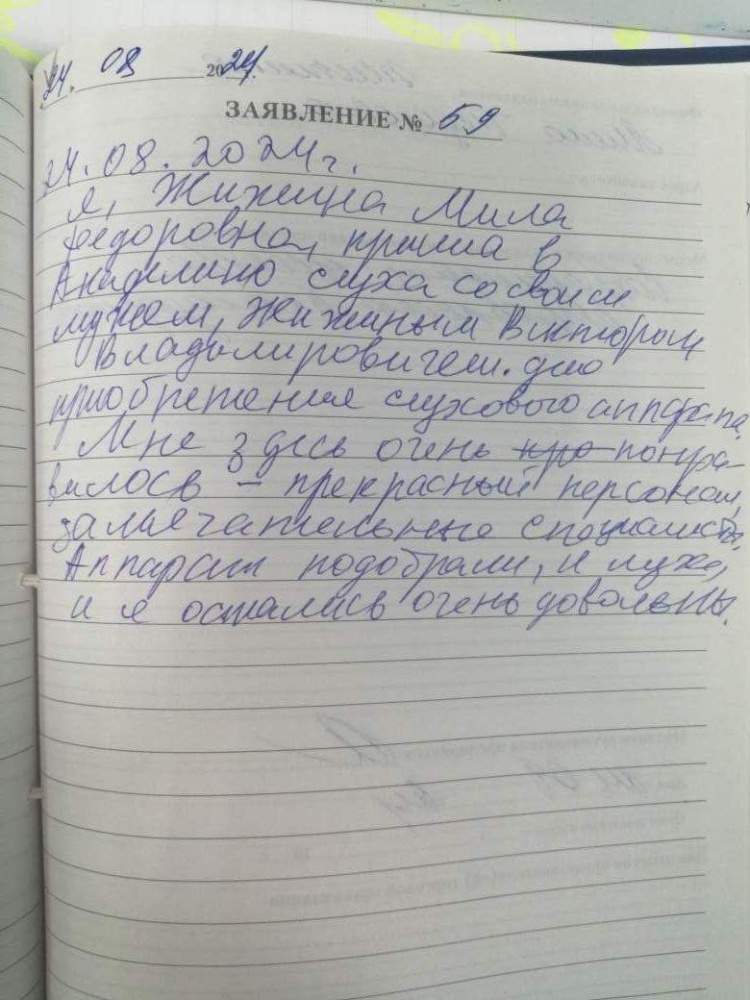 24. 08 2024.
ЗАЯВЛЕНИЕ № 59
24.08.2024г.
я, Жижина Мила
Федоровна, пришла в
Академию слуха со своим
мужем, Жижиным Виктором
Владимировичем. для
приобретения слухового аппарата.
Мне здесь очень понра-
вилось – прекрасный персонал,
замечательные специалисты.
Аппарат подобрали, и муж,
и я остались очень довольны.